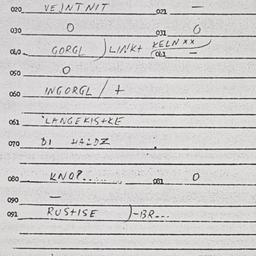 020 VEINTNIT 021 —
030 0 031 0
040 GORGL ) LINKT KELN xx
041 —
050 0
060 INGORGL / +
061 LANGEKISTKE
070 BI
080 KNOP..... 081 0
090 —
091 RUSTISE )-BR...